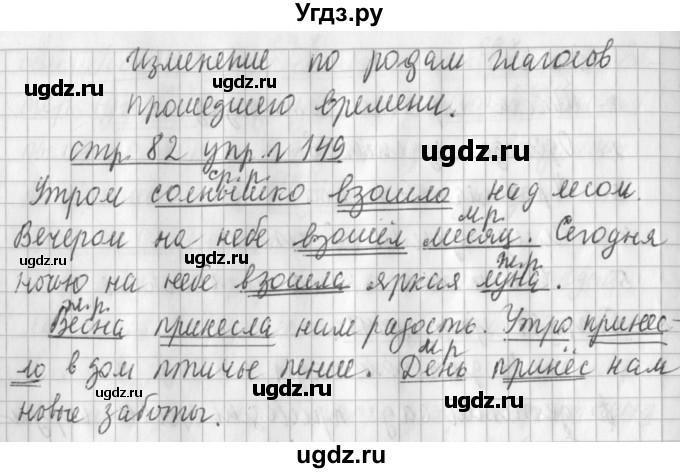 Угдз.ру
Изменение по родам глаголов
прошедшего времени.
стр. 82 упр. № 149
ср.р.
Утром солнышко взошло над лесом.
м.р.
Вечером на небе взошёл месяц. Сегодня
ж.р.
ночью на небе взошла яркая луна.
ж.р.
Весна принесла нам радость. Утро принес-
м.р
ло в дом птичье пение. День принёс нам
новые заботы.
ugdz.ru
ugdz.ru
ugdz.ru
ugdz.ru
ugdz.ru
ugdz.ru
ugdz.ru
ugdz.ru
ugdz.ru
ugdz.ru